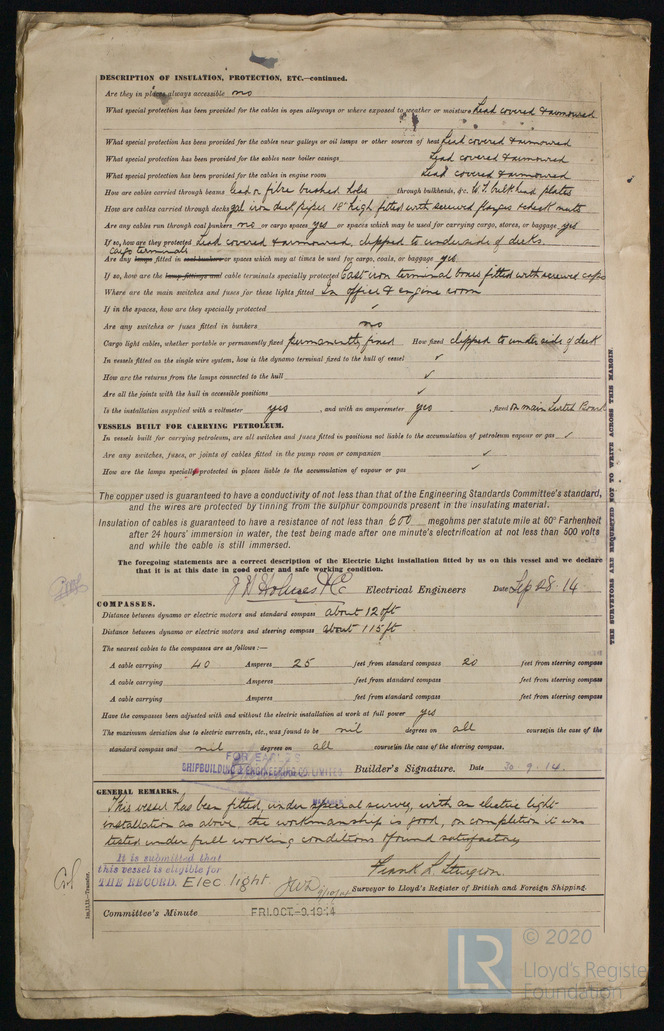 DESCRIPTION OF INSULATION, PROTECTION, ETC.—continued.
Are they in places always accessible no
What special protection has been provided for the cables in open alleyways or where exposed to weather or moisture Lead covered & armoured
What special protection has been provided for the cables near galleys or oil lamps or other sources of heat Lead covered & armoured
What special protection has been provided for the cables near boiler casings Lead covered & armoured
What special protection has been provided for the cables in engine room Lead covered & armoured
How are cables carried through beams lead or fibre bushed holes through bulkheads, &c. W.T. bulkhead plates
How are cables carried through decks gal iron deck pipes 18" high fitted with screwed flanges & deck nuts
Are any cables run through coal bunkers no or cargo spaces yes or spaces which may be used for carrying cargo, stores, or baggage yes
If so, how are they protected Lead covered & armoured, clipped to underside of decks.
Cargo terminals
Are any lamps fitted in coal bunkers or spaces which may at times be used for cargo, coals, or baggage yes
If so, how are the lamp fittings and cable terminals specially protected Cast iron terminal boxes fitted with screwed caps
Where are the main switches and fuses for these lights fitted In office & engine room
If in the spaces, how are they specially protected ✓
Are any switches or fuses fitted in bunkers no
Cargo light cables, whether portable or permanently fixed permanently fixed How fixed clipped to underside of deck
In vessels fitted on the single wire system, how is the dynamo terminal fixed to the hull of vessel ✓
How are the returns from the lamps connected to the hull ✓
Are all the joints with the hull in accessible positions ✓
Is the installation supplied with a voltmeter yes, and with an amperemeter yes, fixed on main Switch Board
VESSELS BUILT FOR CARRYING PETROLEUM.
In vessels built for carrying petroleum, are all switches and fuses fitted in positions not liable to the accumulation of petroleum vapour or gas ✓
Are any switches, fuses, or joints of cables fitted in the pump room or companion ✓
How are the lamps specially protected in places liable to the accumulation of vapour or gas ✓
The copper used is guaranteed to have a conductivity of not less than that of the Engineering Standards Committee's standard,
and the wires are protected by tinning from the sulphur compounds present in the insulating material.
Insulation of cables is guaranteed to have a resistance of not less than 600 megohms per statute mile at 60° Farhenheit
after 24 hours' immersion in water, the test being made after one minute's electrification at not less than 500 volts
and while the cable is still immersed.
The foregoing statements are a correct description of the Electric Light installation fitted by us on this vessel and we declare
that it is at this date in good order and safe working condition.
J H Holmes & Co Electrical Engineers Date Sep 28. 14.
COMPASSES.
Distance between dynamo or electric motors and standard compass about 120ft
Distance between dynamo or electric motors and steering compass about 115ft
The nearest cables to the compasses are as follows:—
A cable carrying 40 Amperes 25 feet from standard compass 20 feet from steering compass
A cable carrying Amperes feet from standard compass feet from steering compass
A cable carrying Amperes feet from standard compass feet from steering compass
Have the compasses been adjusted with and without the electric installation at work at full power yes
The maximum deviation due to electric currents, etc., was found to be nil degrees on all course in the case of the
standard compass and nil degrees on all course in the case of the steering compass.
FOR EARLE'S
SHIPBUILDING & ENGINEERING CO. LIMITED.
Builder's Signature. Date 30-9-14.
MANAGER
GENERAL REMARKS.
This vessel has been fitted, under special survey, with an electric light
installation as above, the workmanship is good, on completion it was
tested under full working conditions & found satisfactory
It is submitted that
this vessel is eligible for
THE RECORD. Elec light JWD 9/10/14
Frank L Sturgeon.
Surveyor to Lloyd's Register of British and Foreign Shipping.
Committee's Minute FRI. OCT. -9. 1914
THE SURVEYORS ARE REQUESTED NOT TO WRITE ACROSS THIS MARGIN.
© 2020
LR
Lloyd's Register
Foundation